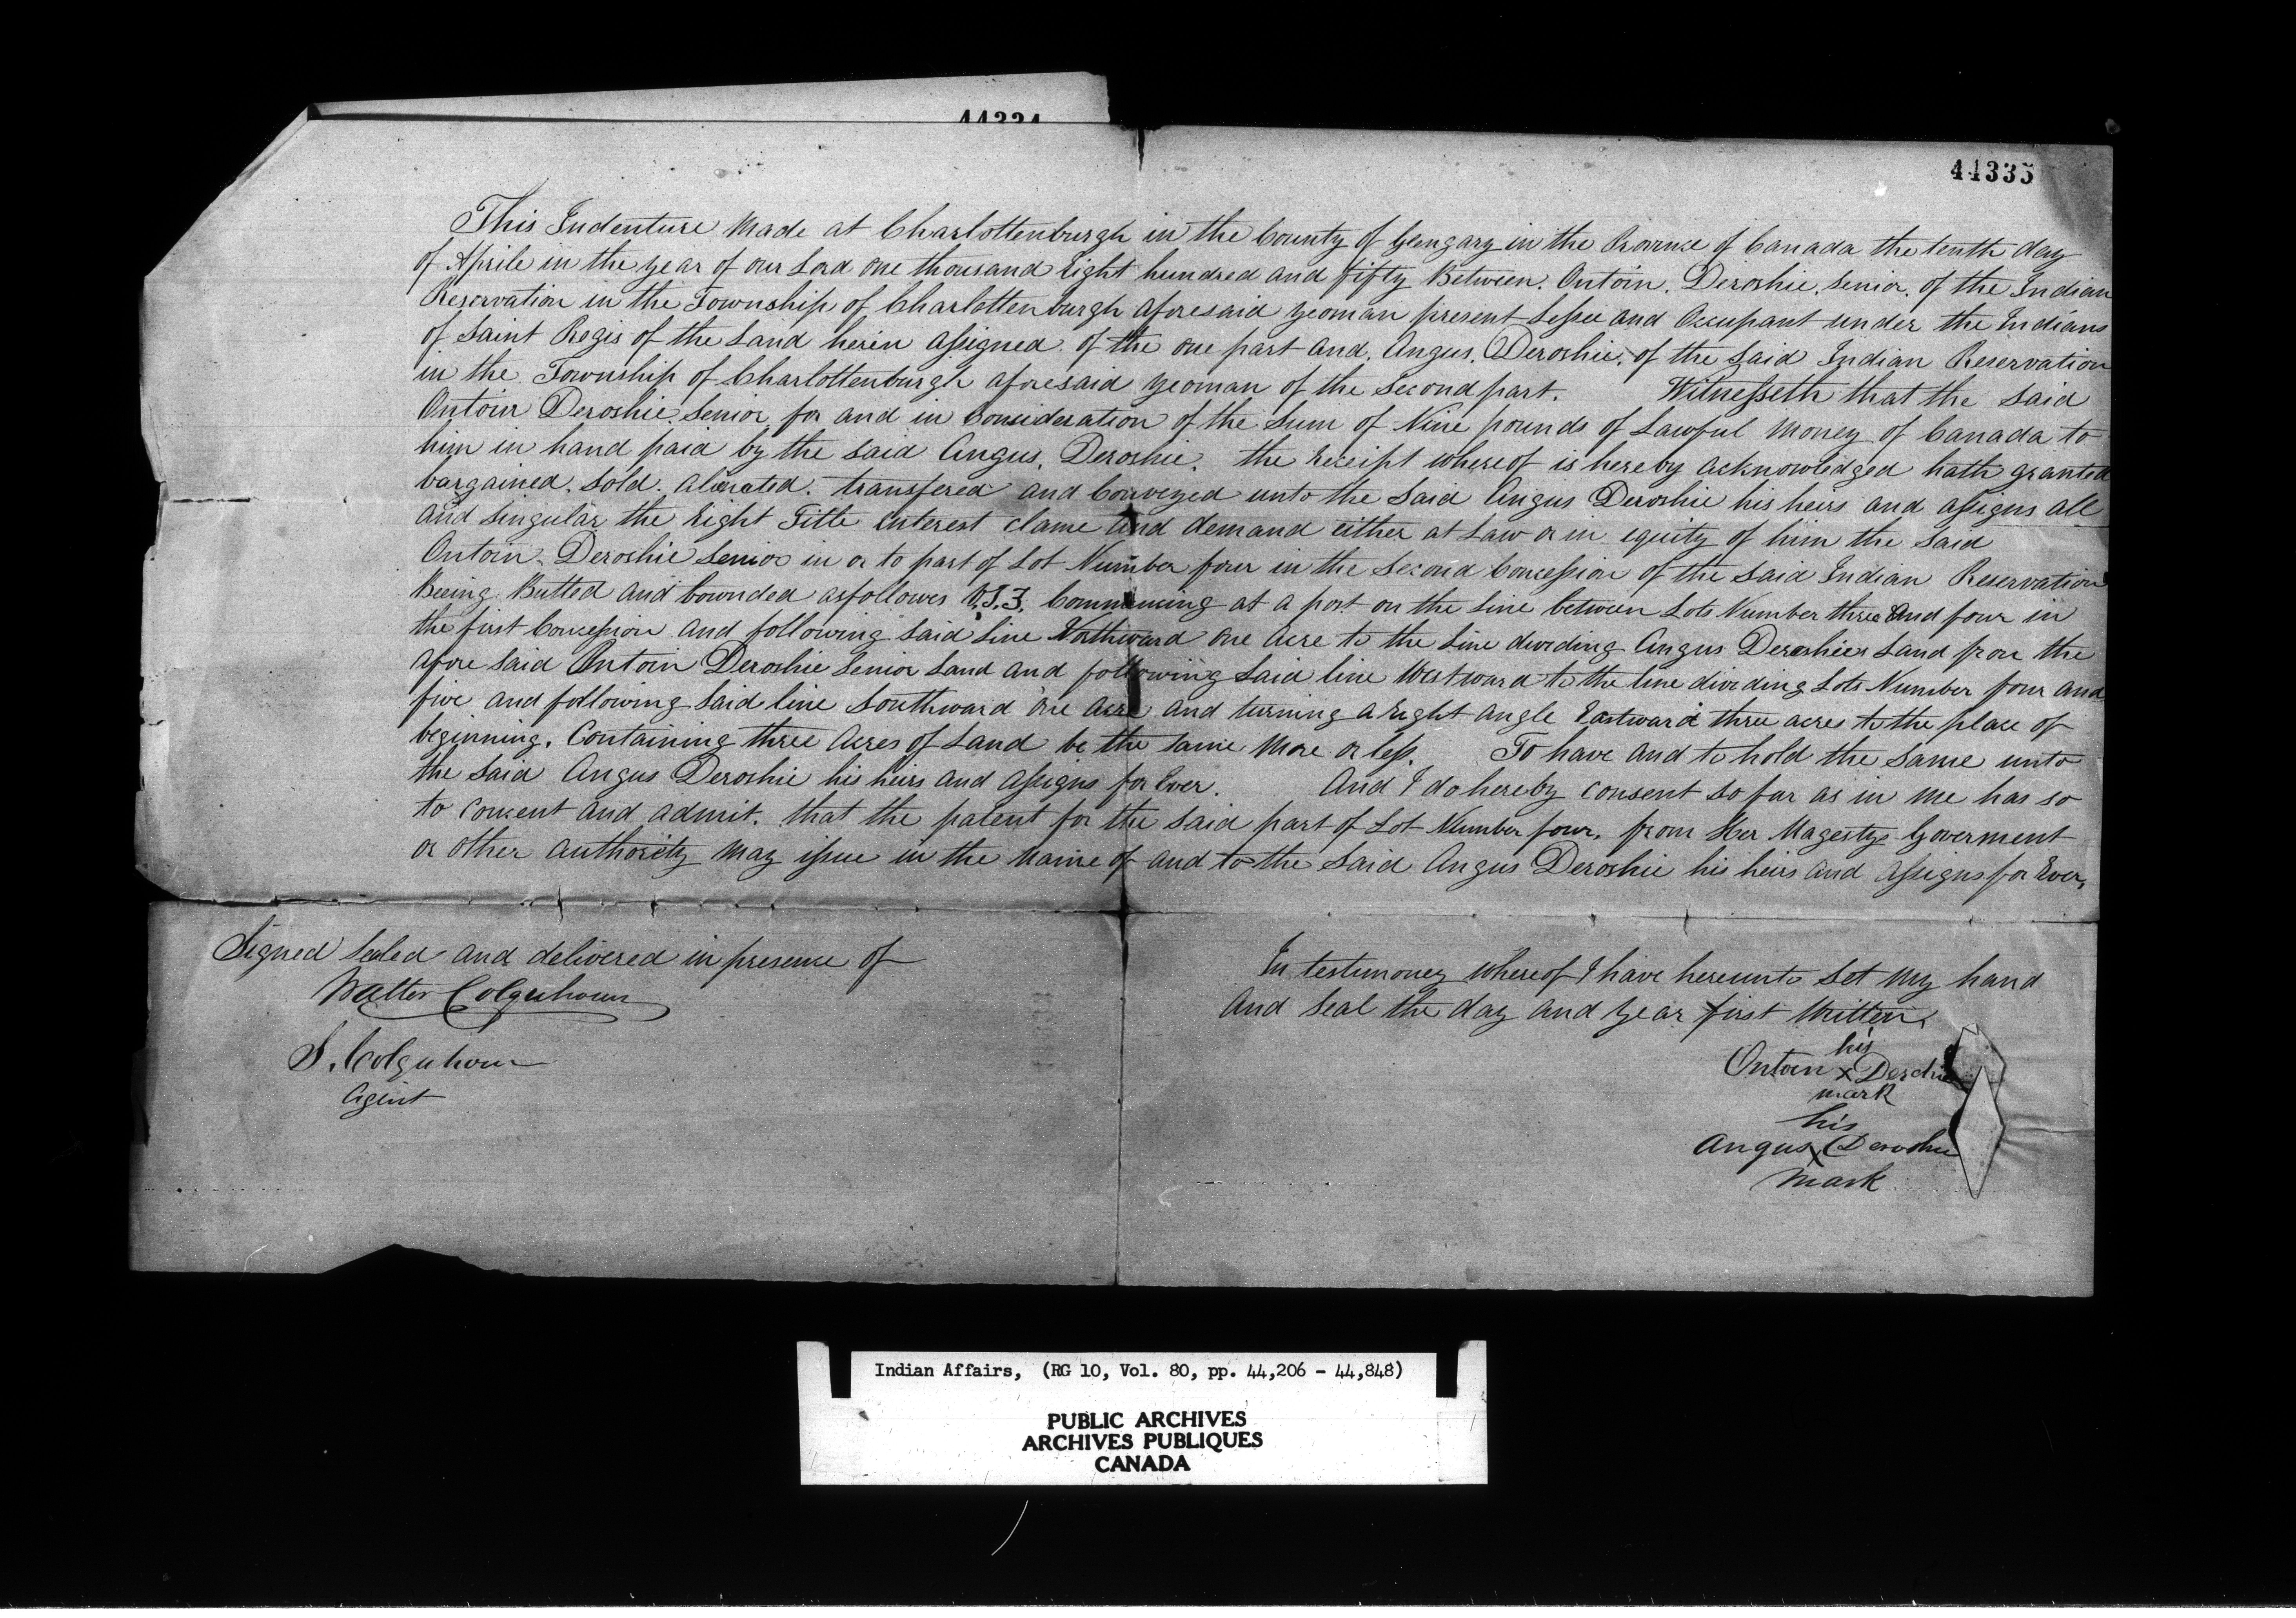 44334
44335
This Indenture Made at Charlottenburgh in the County of Glengary in the Province of Canada the tenth day
of Aprile in the year of our Lord one thousand Eight hundred and fifty Between. Antoin. Deroshie. Senior. of the Indian
Reservation in the Township of Charlottenburgh aforesaid yeoman present Lessee and Occupant under the Indians
of Saint Regis of the Land herein assigned of the one part and. Angus. Deroshie. of the said Indian Reservation
in the Township of Charlottenburgh aforesaid yeoman of the Second part. Witnesseth that the said
Antoin Deroshie Senior for and in Consideration of the Sum of Nine pounds of Lawful Money of Canada to
him in hand paid by the said Angus. Deroshie. the Receipt whereof is hereby acknowledged hath granted
bargained. Sold. alienated. transfered and Conveyed unto the Said Angus Deroshie his heirs and assigns all
and singular the Right Title interest clame and demand either at Law or in equity of him the Said
Antoin. Deroshie Senior in or to part of Lot Number four in the Second Concession of the Said Indian Reservation
Being Butted and bounded as followes V.I.Z. Commencing at a post on the Line between Lots Number three and four in
the first Concession and following said Line Northward one acre to the Line deviding Angus Deroshies Land from the
afore said Antoin Deroshie Senior Land and following said line Westward to the line dividing Lots Number four and
five and following said line Southward one acre and turning a Right angle Eastward three acres to the place of
beginning. Containing three Acres of Land be the same More or less. To have and to hold the same unto
the Said Angus Deroshie his heirs and assigns for Ever. And I do hereby consent so far as in me has so
to consent and admit. that the patent for the said part of Lot Number four. from Her Magestys Goverment
or other authority may issue in the Name of and to the Said Angus Deroshie his heirs and assigns for Ever.
Signed Sealed and delivered in presence of
Walter Colquhoun
S. Colquhoun
Agent
In testimoney whereof I have hereunto Set My hand
And Seal the day and Year first Written
his
Antoin X Deroshie
mark
his
Angus X Deroshie
Mark
Indian Affairs, (RG 10, Vol. 80, pp. 44,206 - 44,848)
PUBLIC ARCHIVES
ARCHIVES PUBLIQUES
CANADA